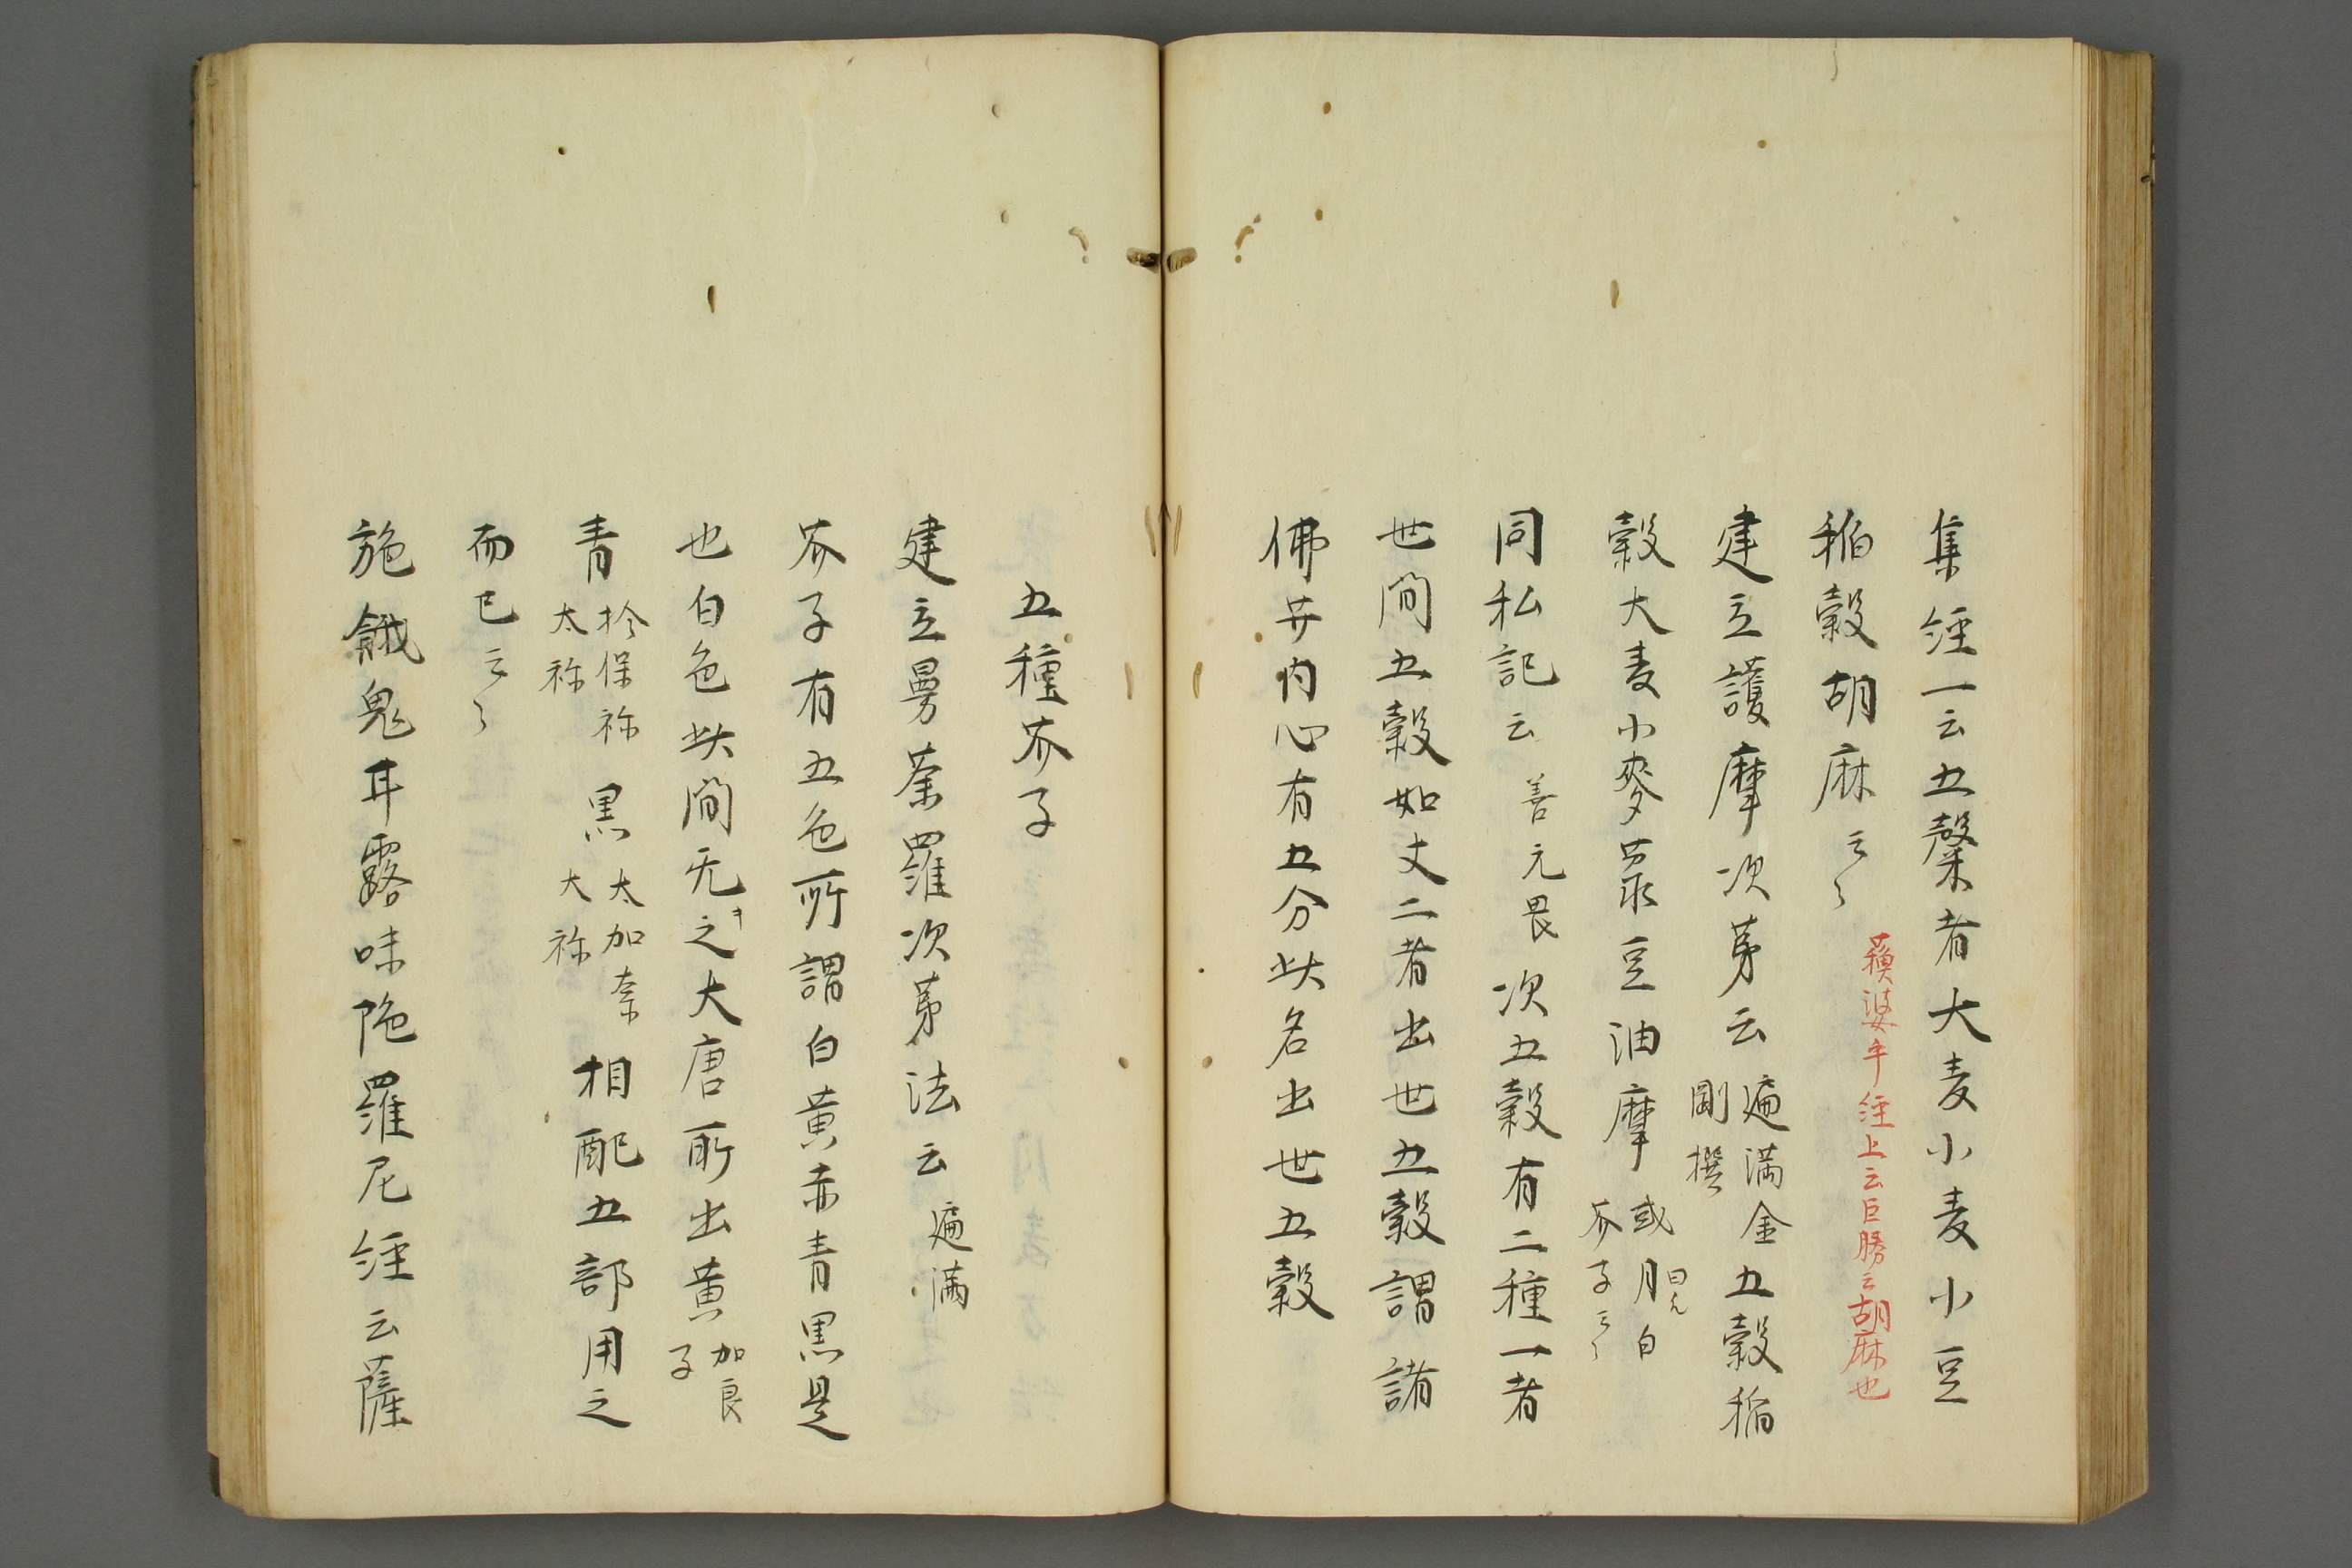 集経一云五穀者大麦小麦小豆
稲穀胡麻云〻
蘓婆乎経上云巨勝云胡麻也
建立護摩次第云遍満金剛撰五穀稲
穀大麦小麥菉豆油摩或月白芥子云〻
同私記云善无畏次五穀有二種一者
世間五穀如丈二者出世五穀謂諸
佛并内心有五分此名出世五穀
五種芥子
建立曼荼羅次第法云遍満
芥子有五色所謂白黄赤青黒是
也白色此間无之大唐所出黄加良子
青於保祢太祢黒太加奈大祢相配五部用之
而已云〻
施餓鬼甘露味陁羅尼経云薩